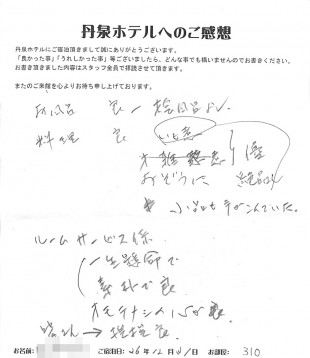 丹泉ホテルへのご感想
丹泉ホテルにご宿泊頂きまして誠にありがとうございます。
「良かった事」「うれしかった事」等ございましたら、どんな事でも構いませんのでお書きください。
お書き頂きました内容はスタッフ全員で拝読させて頂きます。
またのご来館を心よりお待ち申し上げております。
お風呂 良
料理 良
おぞうに 絶品
手がこんでいた。
ルームサービス係
一生懸命で
素朴で良
オモテナシの心が良
皆さん→
お名前: ご宿泊日: 26年12月31日 お部屋: 310